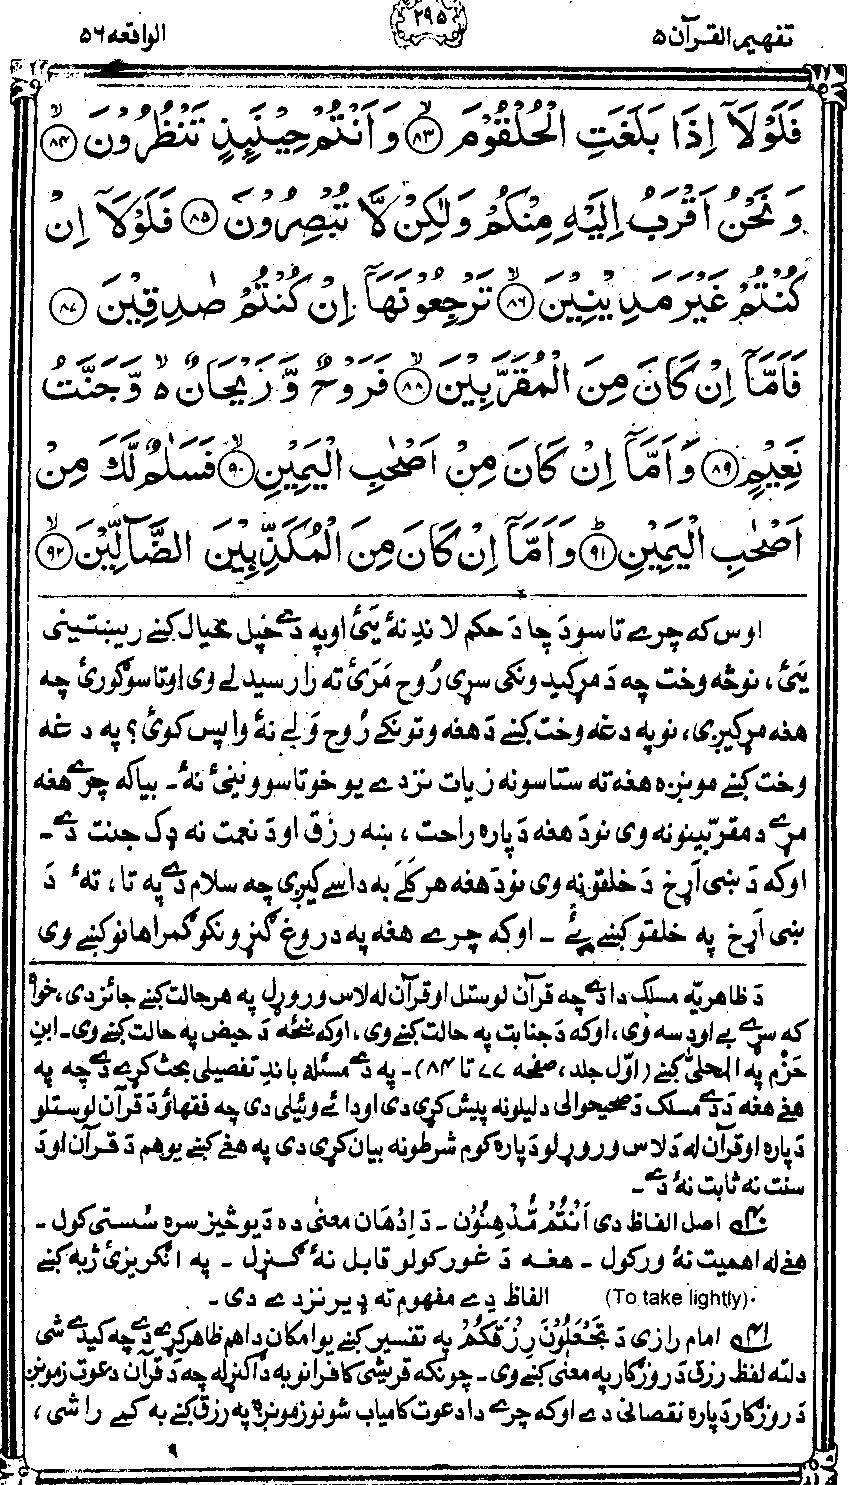 تفهیم القرآن ۵
۲۹۵
الواقعه ۵۶
فَلَوْلَآ اِذَا بَلَغَتِ الْحُلْقُوْمَ ﴿۸۳﴾ وَاَنْتُمْ حِيْنَىِٕذٍ تَنْظُرُوْنَ ﴿۸۴﴾
وَ نَحْنُ اَقْرَبُ اِلَيْهِ مِنْكُمْ وَلٰكِنْ لَّا تُبْصِرُوْنَ ﴿۸۵﴾ فَلَوْلَآ اِنْ
كُنْتُمْ غَيْرَ مَدِيْنِيْنَ ﴿۸۶﴾ تَرْجِعُوْنَهَآ اِنْ كُنْتُمْ صٰدِقِيْنَ ﴿۸۷﴾
فَاَمَّآ اِنْ كَانَ مِنَ الْمُقَرَّبِيْنَ ﴿۸۸﴾ فَرَوْحٌ وَّ رَيْحَانٌ ۙ وَّجَنَّتُ
نَعِيْمٍ ﴿۸۹﴾ وَاَمَّآ اِنْ كَانَ مِنْ اَصْحٰبِ الْيَمِيْنِ ﴿۹۰﴾ فَسَلٰمٌ لَّكَ مِنْ
اَصْحٰبِ الْيَمِيْنِ ﴿۹۱﴾ وَاَمَّآ اِنْ كَانَ مِنَ الْمُكَذِّبِيْنَ الضَّآلِّيْنَ ﴿۹۲﴾
اوس که چرے تاسو دَ چا دَ حکم لاندِ نهٔ یَئ اوپه دے خپل خیال کښے ریښتینی
یَئ، نوڅه وخت چه دَ مرکیدونکی سړی رُوح مَرَئ ته را رسیدلے وی اوتاسو ګورئ چه
هغه مرکیږی، نوپه دغه وخت کښے دَهغه وتونکے رُوح وَلے نهٔ واپس کوئ؟ په دغه
وخت کښے مونږه هغه ته ستاسونه زیات نزدے یو خو تاسو وینئ نهٔ۔ بیا که چرے هغه
مړے دَ مقربینونه وی نودَ هغه دَپاره راحت، ښه رزق اودَ نعمت نه ډک جنت دے۔
اوکه دَ ښی اَرخ دَ خلقونه وی نودَهغه هرکَلے به داسے کیږی چه سلام دے په تا، تهٔ دَ
ښی اَرخ په خلقو کښے ئے ۔ اوکه چرے هغه په دروغ ګنړونکو ګمراهانو کښے وی
دَ ظاهریّه مسلک دا دے چه قرآن لوستل اوقرآن له لاس وروړل په هرحالت کښے جائز دی، خواه
که سړے بے اودسه وی، اوکه دَ جنابت په حالت کښے وی، اوکه ښځه دَ حیض په حالت کښے وی۔ ابن
حَزْم په المحلیٰ کښے (اوّل جلد، صفحه ۷۷ تا ۸۴)۔ په دے مسئله باندِ تفصیلی بحث کړے دے چه په
هغے هغه دَ دے مسلک دَ صحیح والی دلیلونه پیش کړی دی اودا ئے وئیلی دی چه فقهاؤ دَ قرآن لوستلو
دَپاره اوقرآن له دَ لاس وروړلو دَپاره کوم شرطونه بیان کړی دی په هغے کښے یوهم دَ قرآن اودَ
سنت نه ثابت نهٔ دے۔
۴۰ اصل الفاظ دی اَنْتُمْ مُّدْهِنُوْن ۔ دَ اِدْهَان معنیٰ ده دَ یوڅیز سره سُستی کول ۔
هغے له اهمیت نهٔ ورکول ۔ هغه دَ غور کولو قابل نهٔ ګنړل ۔ په انګریزئ ژبه کښے
(To take lightly) الفاظ دِے مفهوم ته ډیر نزدے دی ۔
۴۱ امام رازی دَ تَجْعَلُوْنَ رِزْقَكُمْ په تفسیر کښے یوامکان دا هم ظاهر کړے دے چه کیدے شی
دلته لفظ رزق دَ روزګار په معنیٰ کښے وی ۔ چونکه قریشی کافرانو به دا ګنړله چه دَ قرآن دعوت زمونږ
دَ روزګار دَپاره نقصانی دے اوکه چرے دا دعوت کامیاب شو نو زمونږه په رزق کښے به کمے راشی،